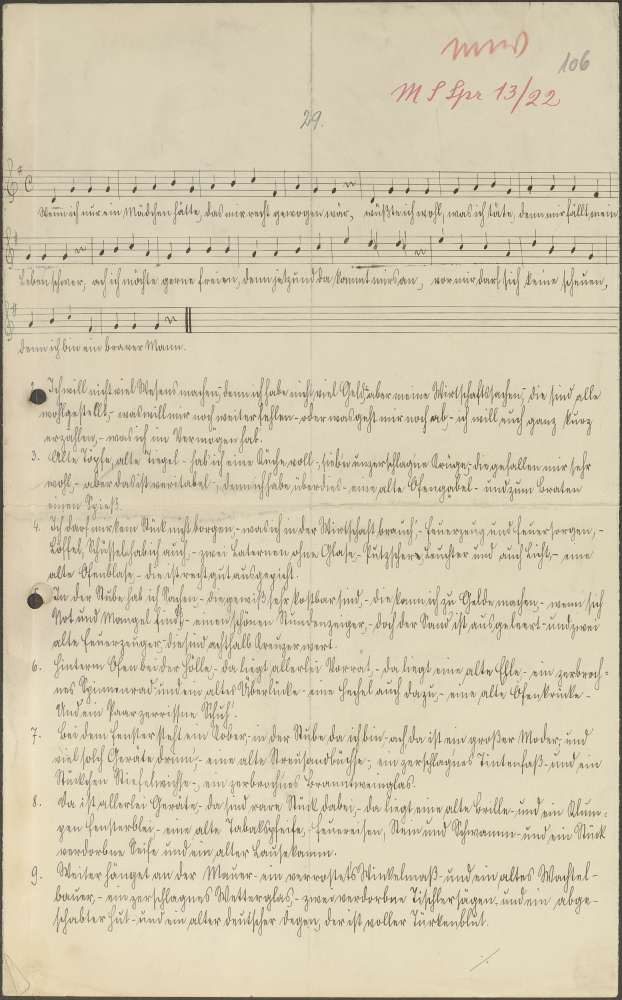 106
M S Spr 13/22
29.
Wenn ich nur ein Mädchen hätte, das mir recht gewogen wär, wüßte ich wohl, was ich täte, denn mir fällt mein
Leben schwer, ach ich möchte gerne freien, denn jetzund da kommt mirs an, vor mir darf sich keine scheuen,
denn ich bin ein braver Mann.
Ich will nicht viel Wesens machen, denn ich habe nicht viel Geld, aber meine Wirtschaftssachen, die sind alle
wohlgestellt, - was will mir noch weiter fehlen - oder was geht mir noch ab - ich will euch ganz kurz
erzählen, - was ich im Vermögen hab.
3. Alte Töpfe, alte Tiegel - hab ich eine Küche voll, sieb'n unzerschlagne Krüge, - die gefallen mir sehr
wohl, - aber das ist veritabel, - denn ich habe überdies - eine alte Ofengabel - und zum Braten
einen Spieß.
4. Ich darf mir kein Stück nicht borgen, - was ich in der Wirtschaft brauch', - Feuerzeug und Feuersorgen, -
Löffel, Schüssel hab ich auch, - zwei Laternen ohne Glase, - Putzscher, Leuchter und auch Licht, - eine
alte Ofenblase, - die ist recht gut ausgepicht.
In der Stube hab ich Sachen, - die gewiß sehr kostbar sind, - die kann ich zu Gelde machen, - wenn sich
Not und Mangel find't, - einen schönen Stundenzeiger, - doch der Sand ist ausgeleert - und zwei
alte Feuerzeuger, - die sind achthalb Kreuzer wert.
6. Hinterm Ofen bei der Hölle, - da liegt allerlei Vorrat, - da liegt eine alte Elle, - ein zerbroch-
nes Spinnenrad und ein altes - eine Hechel auch dazu, - eine alte Ofenkrücke -
Und ein Paar zerrissne Schuh'.
7. Bei dem Fenster steht ein Tober, - in der Stube da ich bin - ach da ist ein großer Moder, und
viel solch Geräte drinn' - eine alte Streusandbüchse, - ein zerschlagnes Tintenfaß - und ein
Stückchen Stiefelwichse -, ein zerbrochnes Branntweinglas.
8. Da ist allerlei Geräte, - da sind rare Stück dabei, - da liegt eine alte Brille - und ein Klum-
pen Fensterblei - eine alte Tabakspfeife, Feuereisen, Stein und Schwamm - und ein Stück
verdorbne Seife und ein alter Lausekamm.
9. Weiter hänget an der Mauer - ein verrostetes Winkelmaß - und ein altes Wachtel-
bauer, - ein zerschlagnes Wetterglas, - zwei verdorbne Tischlersägen - und ein abge-
schabter Hut - und ein alter deutscher Degen, der ist voller Türkenblut.